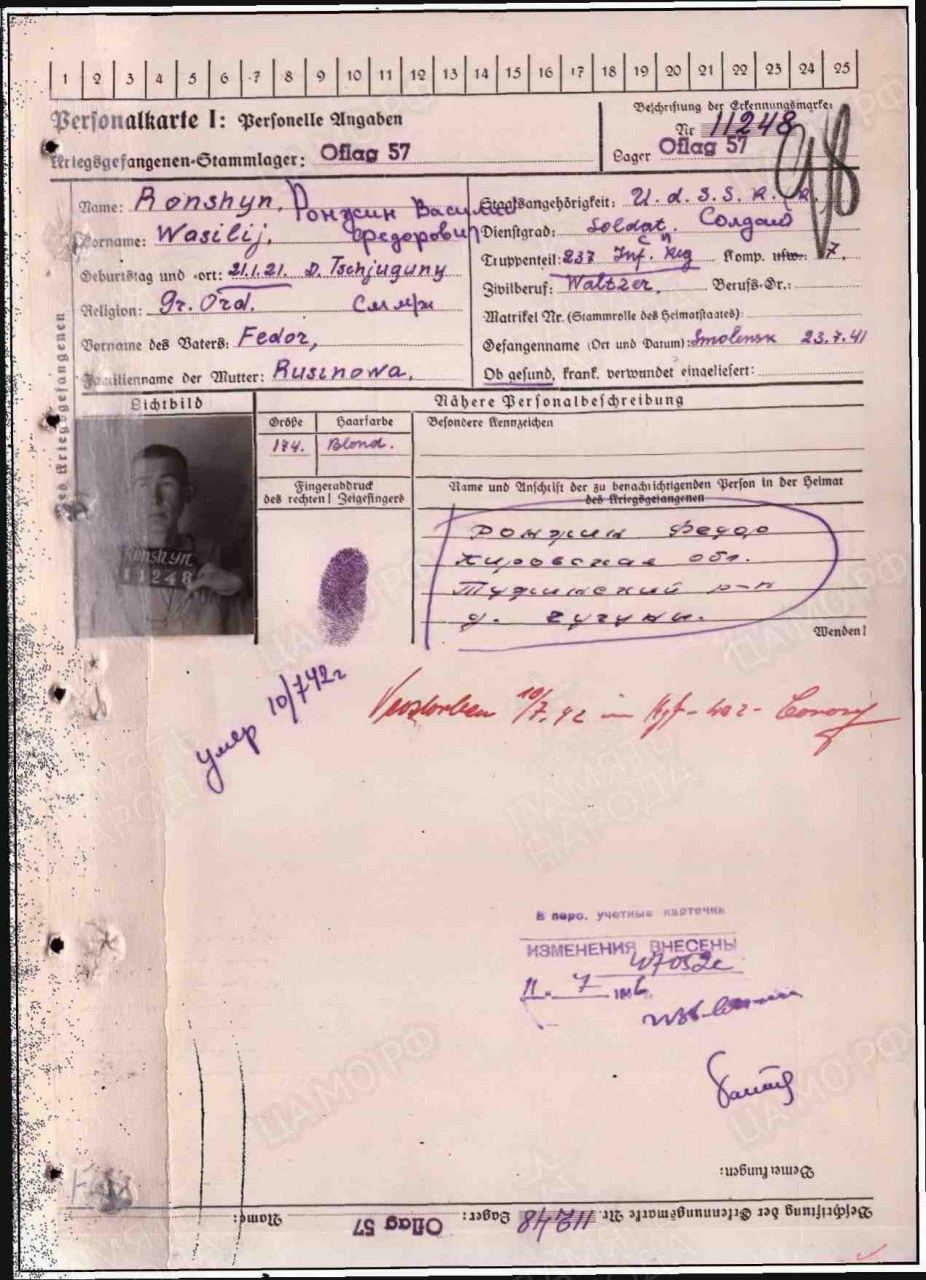 1 2 3 4 5 6 7 8 9 10 11 12 13 14 15 16 17 18 19 20 21 22 23 24 25
Personalkarte I: Personelle Angaben
Kriegsgefangenen-Stammlager: Oflag 57
Beschriftung der Erkennungsmarke:
Nr 11248
Lager Oflag 57
Name: Ronshyn, Ронжин Василий
Vorname: Wasilij, Федорович
Geburtstag und -ort: 21.1.21. D. Tschjuguny
Religion: Gr. Ord.
Vorname des Vaters: Fedor,
Familienname der Mutter: Rusinowa,
Staatsangehörigkeit: U. d. S. S. R.
Dienstgrad: Soldat. Солдат
Truppenteil: 237 Inf. Reg Komp. usw. 7.
Zivilberuf: Waltzer, Berufs-Gr.:
Matrikel Nr. (Stammrolle des Heimatstaates):
Gefangenname (Ort und Datum): Smolensk 23.7.41
Ob gesund, krank, verwundet eingeliefert:
des Kriegsgefangenen
Lichtbild
Nähere Personalbeschreibung
Größe Haarfarbe Besondere Kennzeichen
174. Blond.
Fingerabdruck
des rechten! Zeigefingers
Name und Anschrift der zu benachrichtigenden Person in der Heimat
des Kriegsgefangenen
Ronshyn
11248
Ронжин Федор
Кировская обл.
Тужинский р-н
д. Чугуны.
Wenden!
умер 10/7 42г
Verstorben 10/7.42 im
В перс. учетные карточки
ИЗМЕНЕНИЯ ВНЕСЕНЫ
11. 7
Bemerkungen:
Beschriftung der Erkennungsmarke Nr. 11248 Lager: Oflag 57 Name:
ЦАМО.РФ
ПАМЯТЬ
НАРОДА